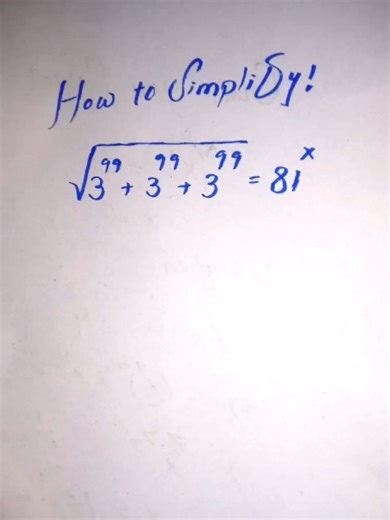 How to Simplify!
√3^99 + 3^99 + 3^99 = 81^x